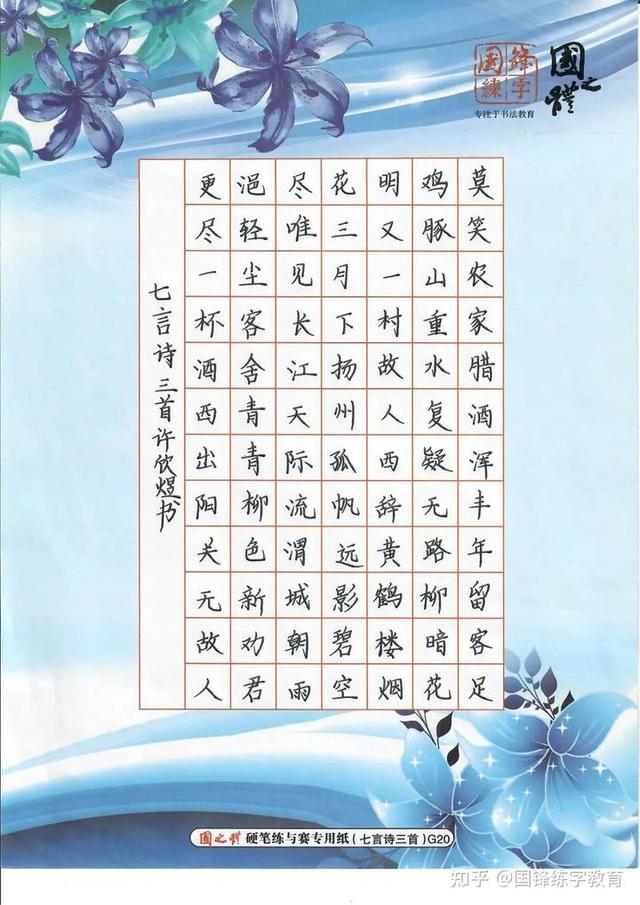 國鋒
練字
國之
专注于书法教育
莫笑农家腊酒浑丰年留客足
鸡豚山重水复疑无路柳暗花
明又一村故人西辞黄鹤楼烟
花三月下扬州孤帆远影碧空
尽唯见长江天际流渭城朝雨
浥轻尘客舍青青柳色新劝君
更尽一杯酒西出阳关无故人
七言诗三首许煜书
國之 硬笔练与赛专用纸(七言诗三首)G20
知乎 @国锋练字教育